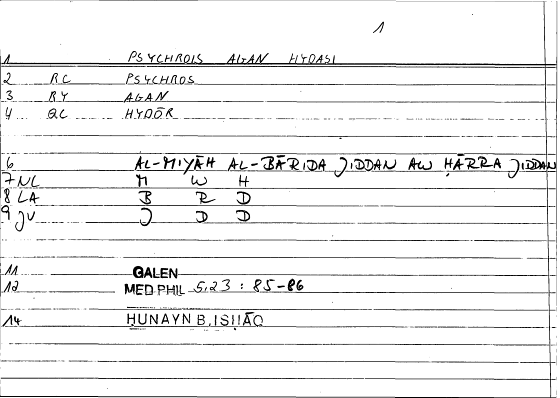 1
1 PSYCHROIS AGAN HYDASI
2 RC PSYCHROS
3 RY AGAN
4 QC HYDŌR
6 AL-MIYĀH AL-BĀRIDA JIDDAN AW ḤĀRRA JIDDAN
7 NL M W H
8 LA B R D
9 JV J D D
11 GALEN
12 MED PHIL 5,23 : 85-86
14 ḤUNAYN B. ISḤĀQ